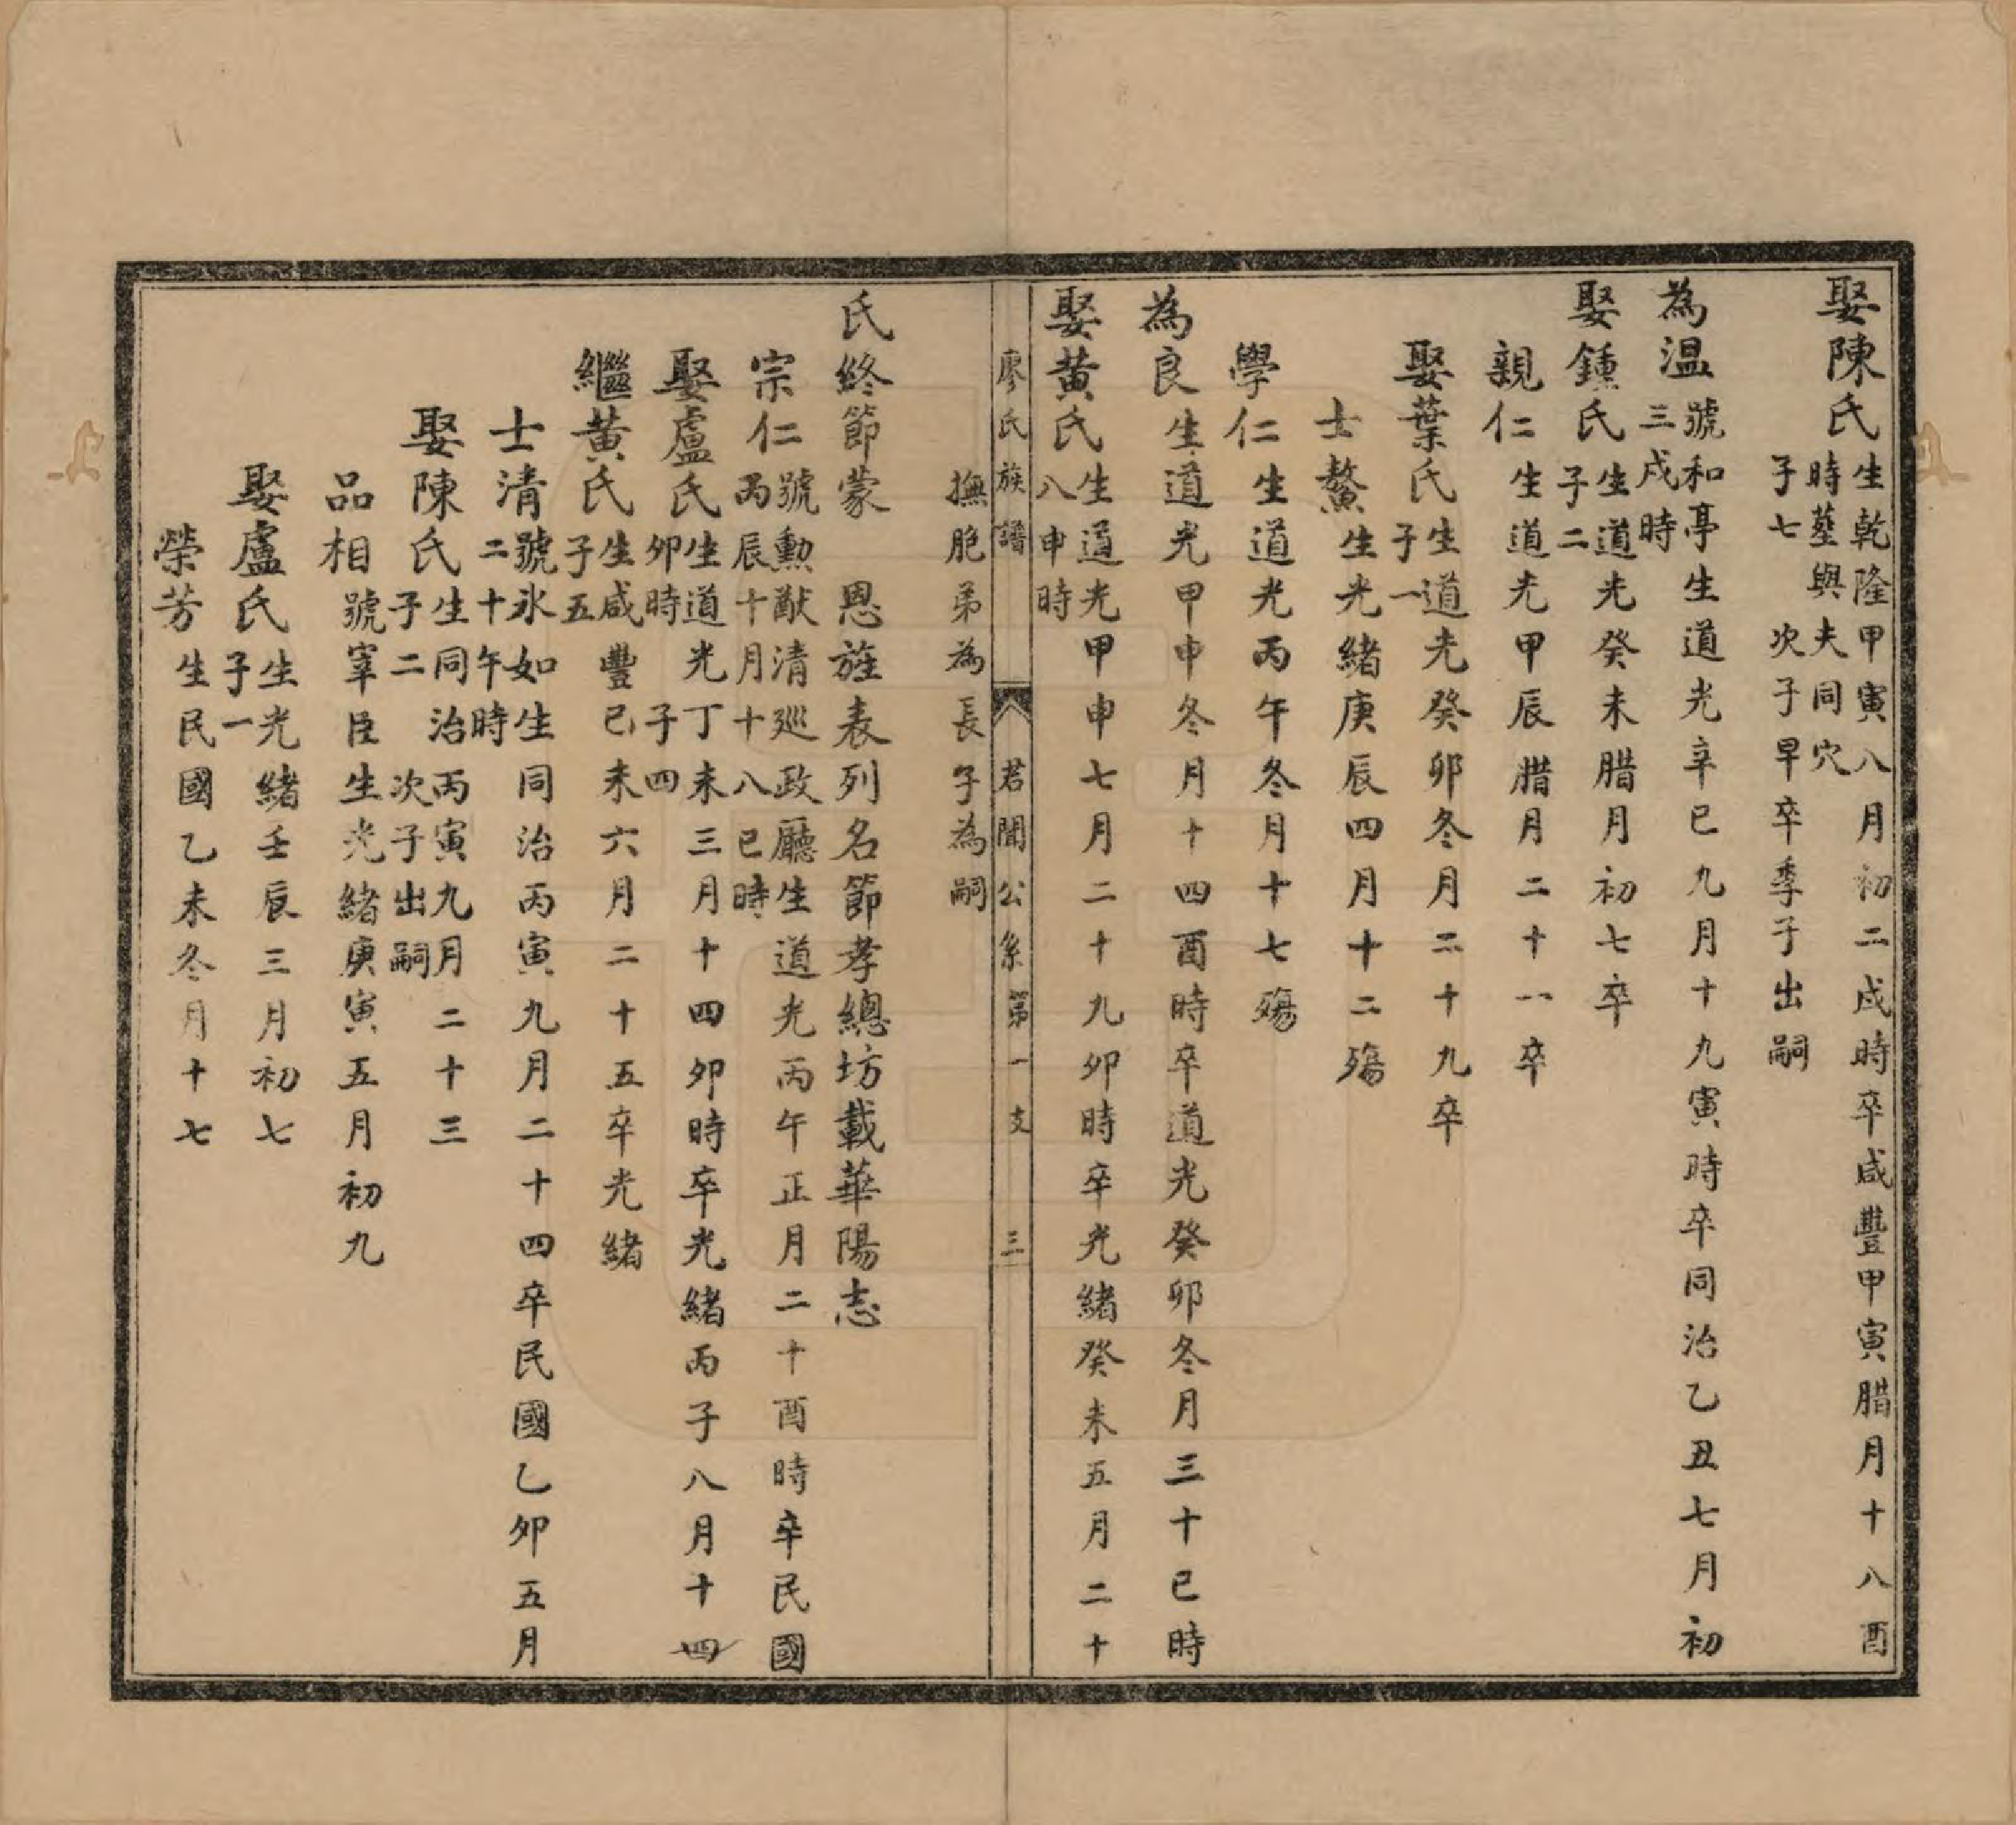 娶陳氏生乾隆甲寅八月初二戌時卒咸豐甲寅腊月十八酉
時塟與夫同穴
子七　次子早卒季子出嗣
為温號和亭生道光辛巳九月十九寅時卒同治乙丑七月初
三戌時
娶鍾氏生道光癸未腊月初七卒
子二
親仁生道光甲辰腊月二十一卒
娶葉氏生道光癸卯冬月二十九卒
子一
士鰲生光緒庚辰四月十二殤
學仁生道光丙午冬月十七殤
為良生道光甲申冬月十四酉時卒道光癸卯冬月三十巳時
娶黄氏生道光甲申七月二十九卯時卒光緒癸未五月二十
八申時
廖氏族譜　君聞公系第一支　三
撫胞弟為長子為嗣
氏終節蒙　恩旌表列名節孝總坊載華陽志
宗仁號勳猷清巡政廳生道光丙午正月二十酉時卒民國
丙辰十月十八巳時
娶盧氏生道光丁未三月十四卯時卒光緒丙子八月十四
卯時　子四
繼黄氏生咸豐己未六月二十五卒光緒
子五
士清號氷如生同治丙寅九月二十四卒民國乙卯五月
二十午時
娶陳氏生同治丙寅九月二十三
子二　次子出嗣
品相號宰臣生光緒庚寅五月初九
娶盧氏生光緒壬辰三月初七
子一
榮芳生民國乙未冬月十七